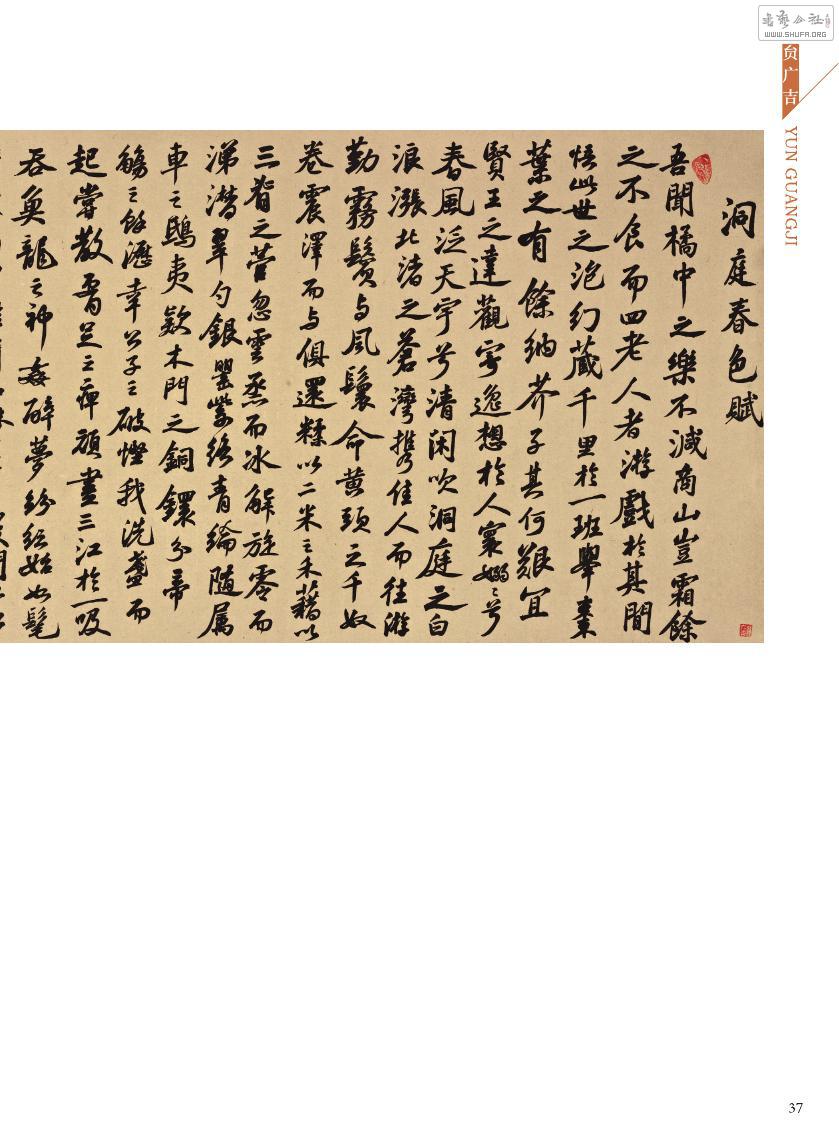 书艺公社
WWW.SHUFA.ORG
贠广吉
YUN GUANGJI
洞庭春色賦
吾聞橘中之樂不減商山豈霜餘
之不食而四老人者游戲於其間
悟此世之泡幻藏千里於一班舉棗
葉之有餘納芥子其何艱宜
賢王之達觀寄逸想於人寰嫋〻兮
春風泛天宇兮清闲吹洞庭之白
浪漲北渚之蒼灣攜佳人而往游
勤霧鬢与風鬟命黄頭之千奴
卷震澤而与俱還糅以二米之禾藉以
三脊之菅忽雲烝而冰解旋零而
涕潸翠勺銀罌紫絡青綸随属
車之鴟夷款木門之銅鐶分帚
觴之餘瀝幸公子之破慳我洗盞而
起嘗散腰足之痺頑盡三江於一吸
吞魚龍之神姦醉夢紛紜始如髦
37